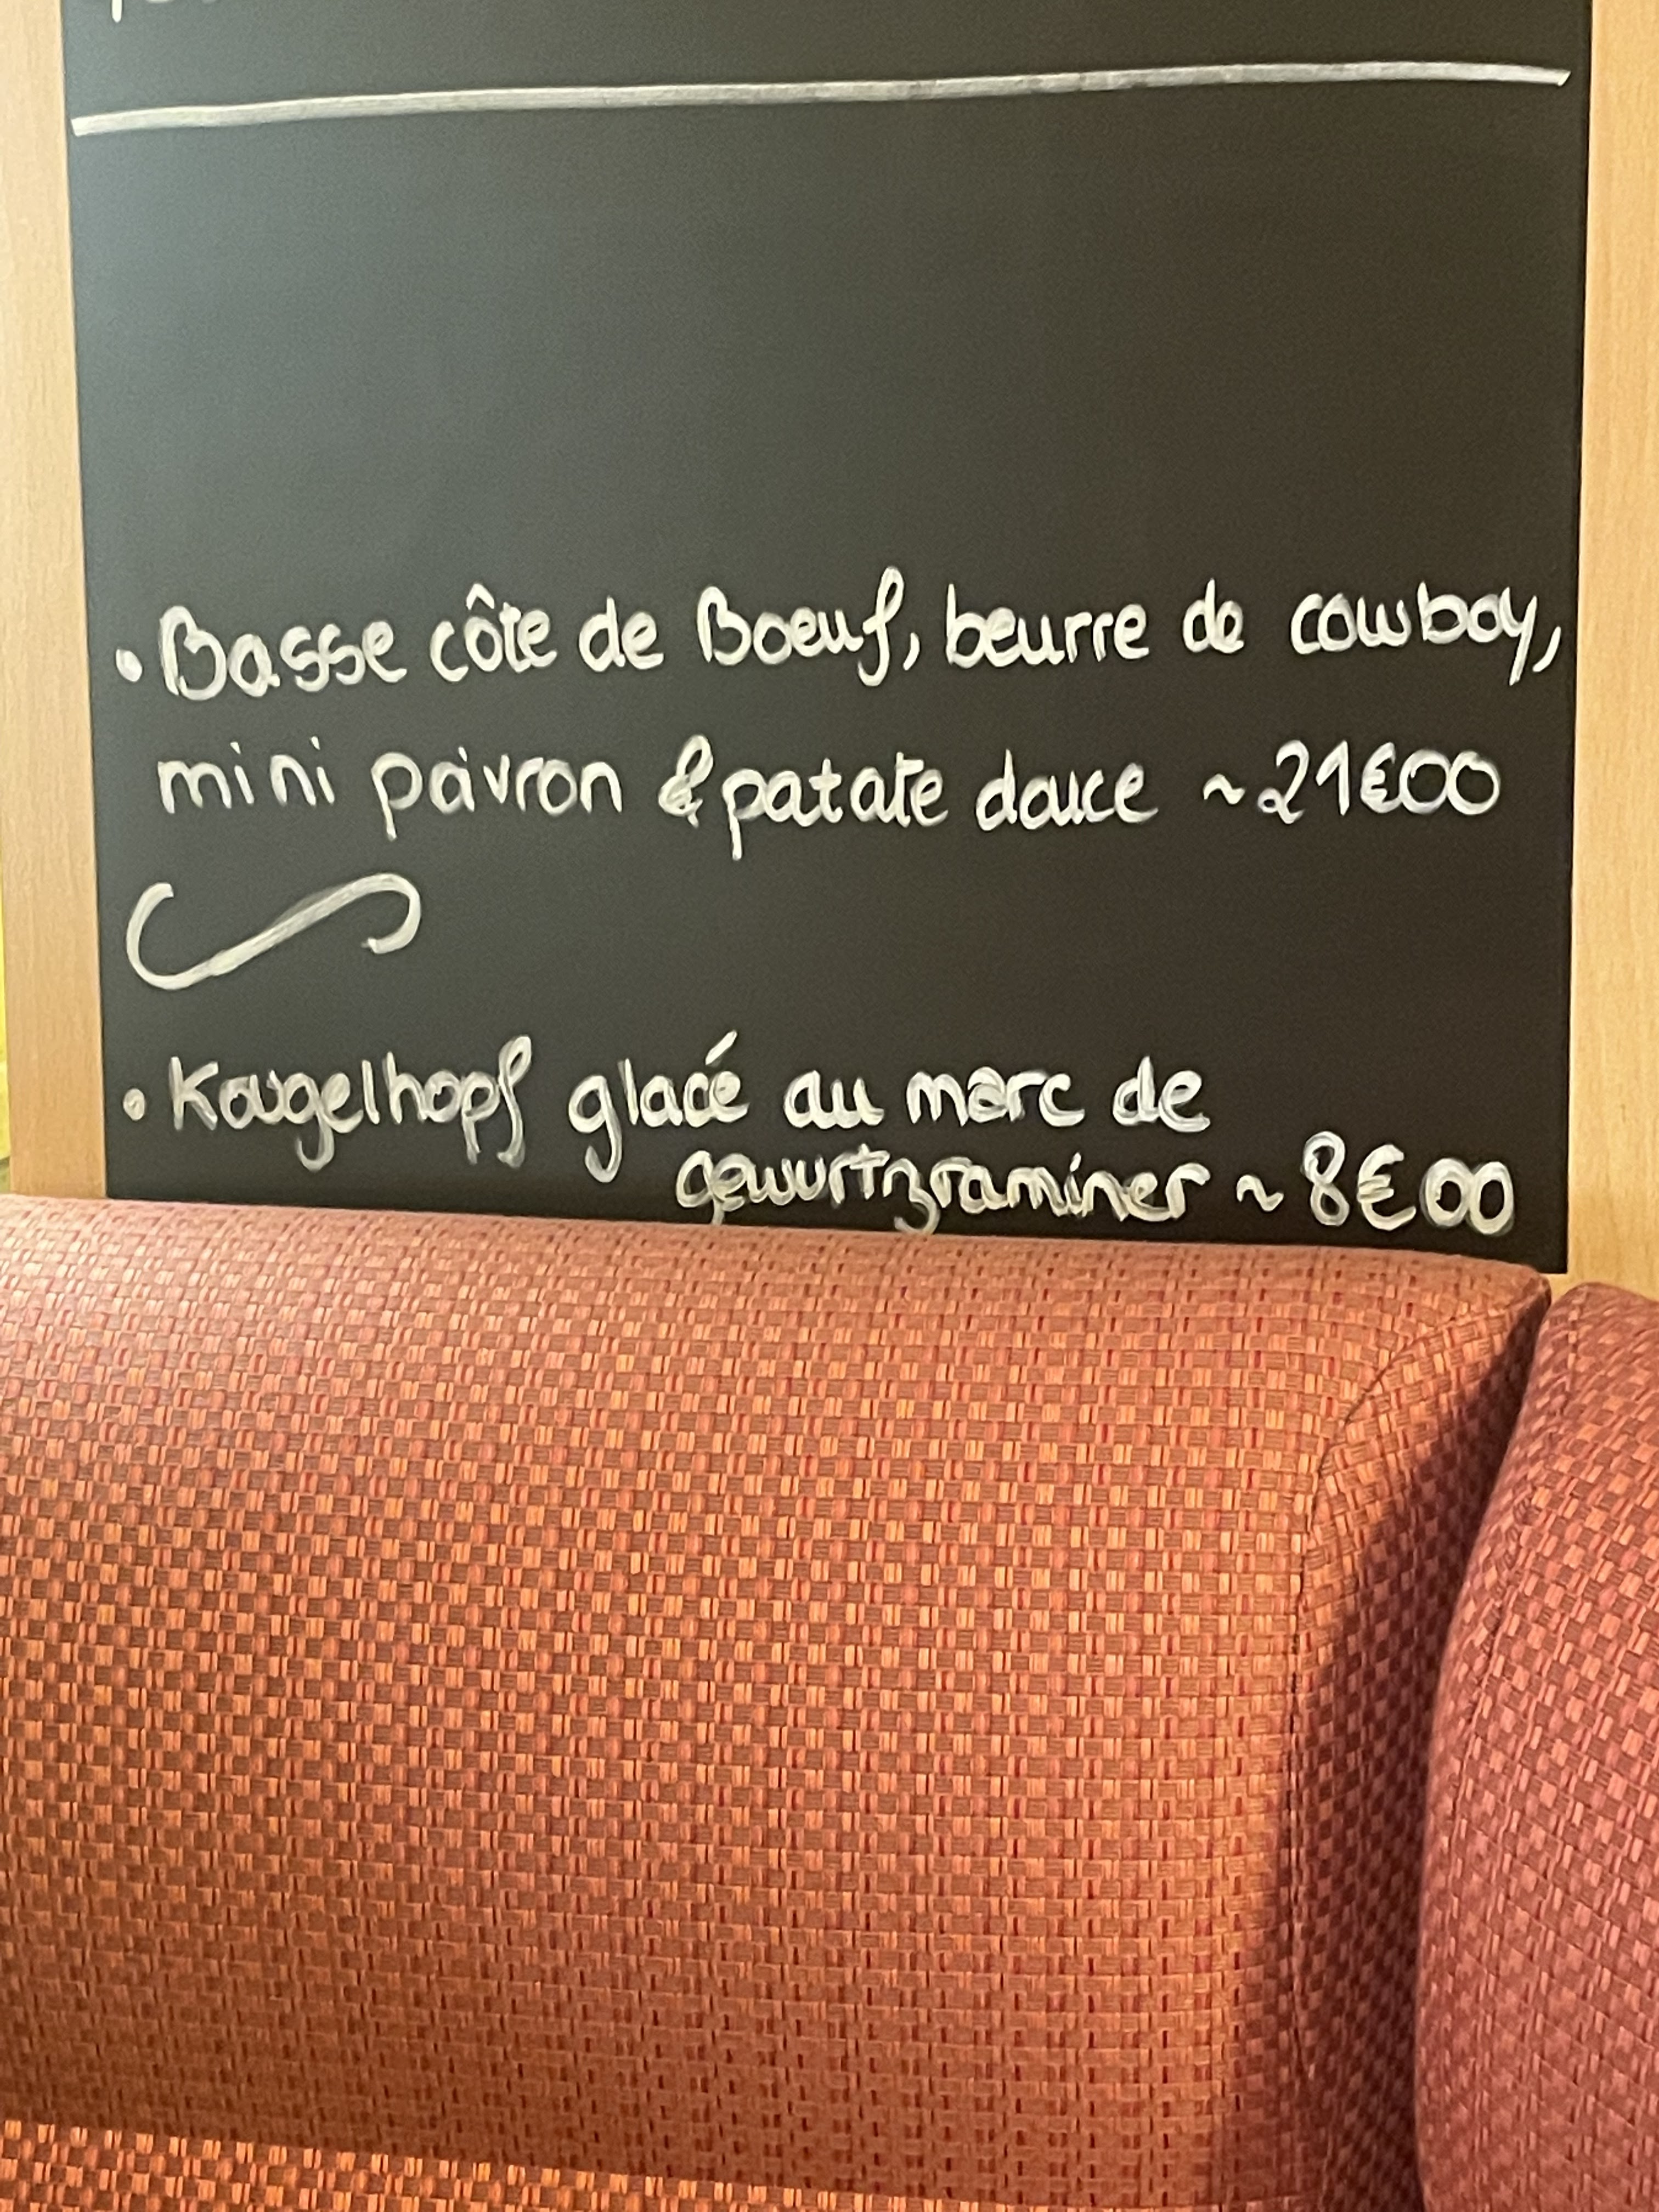 • Basse côte de Boeuf, beurre de cowboy,
mini poivron & patate douce ~ 21€00
• Kougelhopf glacé au marc de
gewurtzraminer ~ 8€00